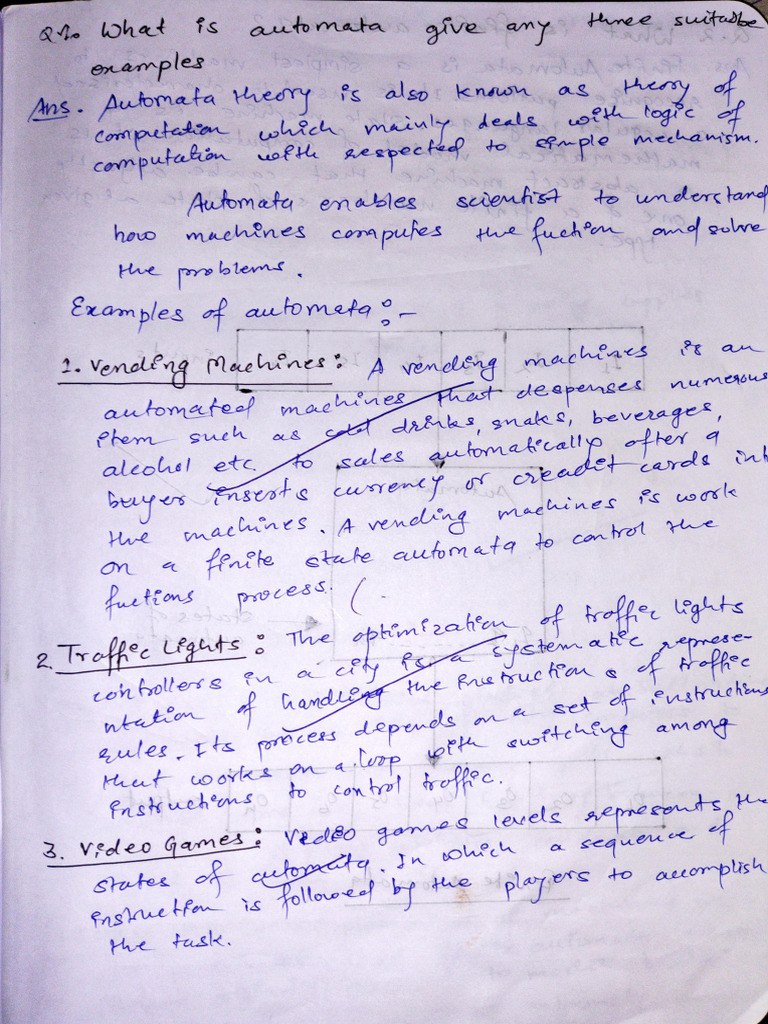 Q1. What is automata give any three suitable
examples
Ans. Automata theory is also known as theory of
computation which mainly deals with logic of
computation with respected to simple mechanism.
Automata enables scientist to understand
how machines computes the fuction and solve
the problems.
Examples of automata:-
1. Vending Machines: A vending machines is an
automated machines that despenses numerous
item such as cold drinks, snaks, beverages,
alcohol etc. to sales automatically after a
buyer inserts currency or creadit cards int
the machines. A vending machines is work
on a finite state automata to control the
fuctions process.
2. Traffic Lights: The optimization of traffic lights
controllers in a city is a systematic represe-
ntation of handling the instructions of traffic
rules. Its process depends on a set of instructions
that works on a loop with switching among
instructions to control traffic.
3. Video Games: Video games levels represents the
states of automata. In which a sequence of
instruction is followed by the players to accomplish
the task.